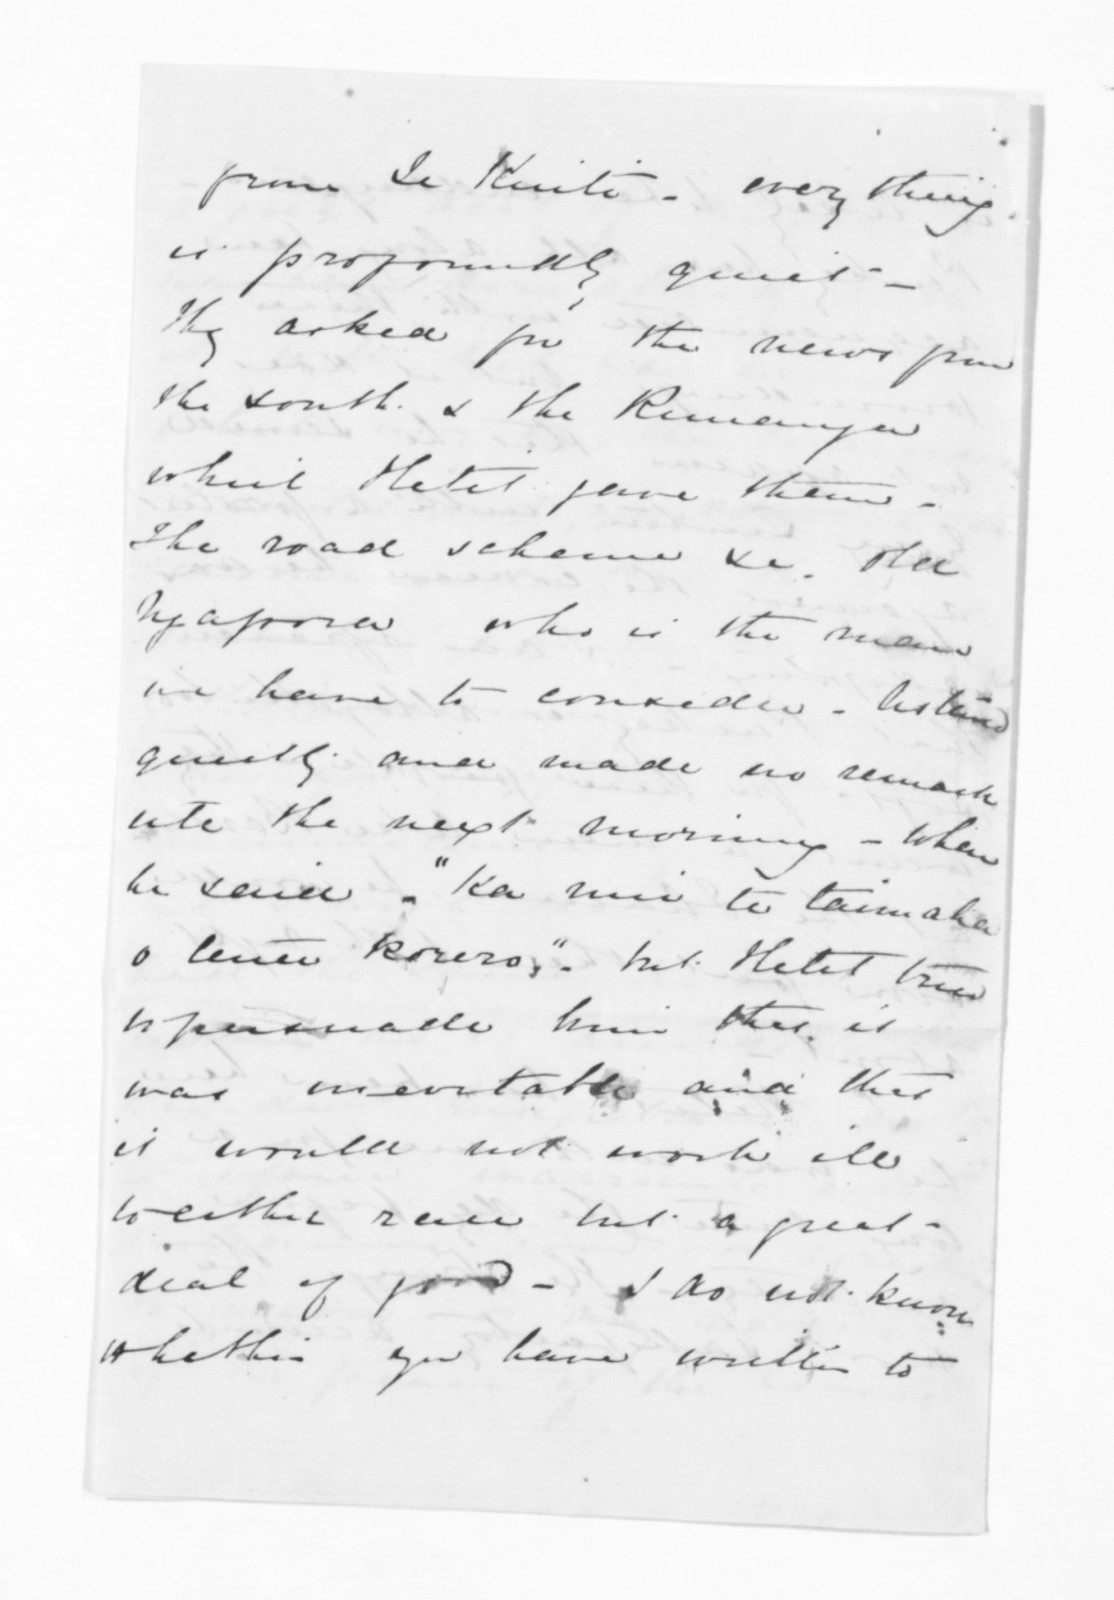 from Te Kuiti - every thing
is profoundly quiet -
They asked for the news from
the south. & the Rimanga
which Hetet gave them -
The road scheme &c. Old
Ngapora who is the man
we have to consider - listened
quietly and made no remark
until the next morning - when
he said - "Ka nui te taimaha
o tenei korero," - but Hetet tried
to persuade him that it
was inevitable and that
it would not work ill
to either race but a great
deal of good - I do not know
whether you have written to